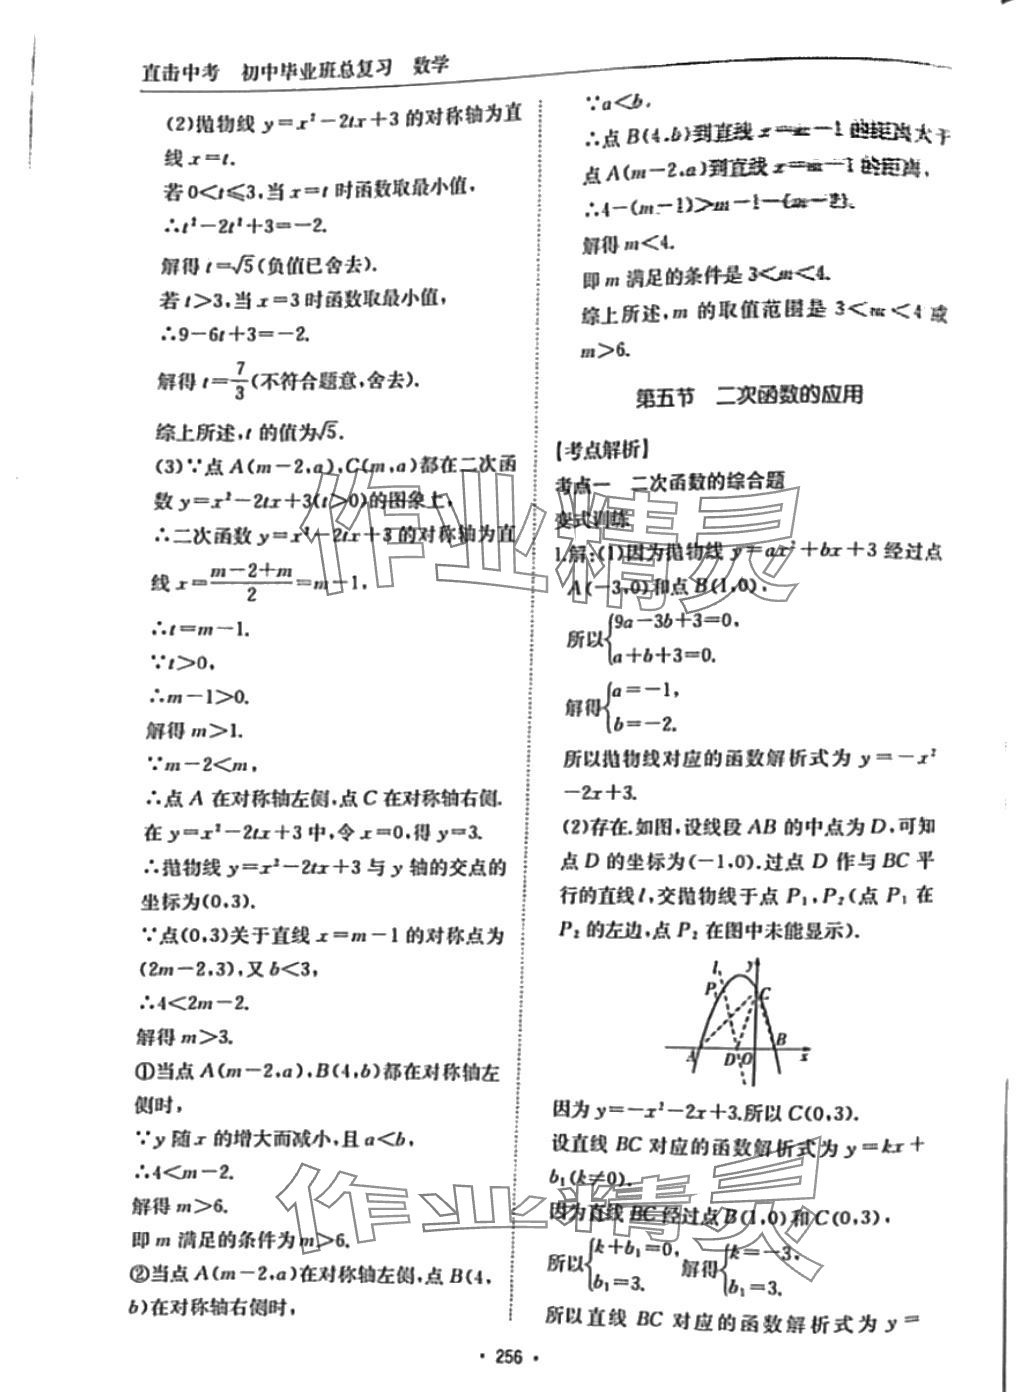 直击中考 初中毕业班总复习 数学
(2)抛物线 y=x²-2tx+3 的对称轴为直
线 x=t.
若 0<t⩽3,当 x=t 时函数取最小值,
∴t²-2t²+3=-2.
解得 t=√5(负值已舍去).
若 t>3,当 x=3 时函数取最小值,
∴9-6t+3=-2.
解得 t=7/3(不符合题意,舍去).
综上所述,t 的值为√5.
(3)∵点 A(m-2,a),C(m,a)都在二次函
数 y=x²-2tx+3(t>0)的图象上,
∴二次函数 y=x²-2tx+3 的对称轴为直
线 x=(m-2+m)/2=m-1,
∴t=m-1.
∵t>0,
∴m-1>0.
解得 m>1.
∵m-2<m,
∴点 A 在对称轴左侧,点 C 在对称轴右侧.
在 y=x²-2tx+3 中,令 x=0,得 y=3.
∴抛物线 y=x²-2tx+3 与 y 轴的交点的
坐标为(0,3).
∵点(0,3)关于直线 x=m-1 的对称点为
(2m-2,3),又 b<3,
∴4<2m-2.
解得 m>3.
①当点 A(m-2,a),B(4,b)都在对称轴左
侧时,
∵y 随 x 的增大而减小,且 a<b,
∴4<m-2.
解得 m>6.
即 m 满足的条件为 m>6.
②当点 A(m-2,a)在对称轴左侧,点 B(4,
b)在对称轴右侧时,
∵a<b,
∴点 B(4,b)到直线 x=m-1 的距离大于
点 A(m-2,a)到直线 x=m-1 的距离,
∴4-(m-1)>m-1-(m-2).
解得 m<4.
即 m 满足的条件是 3<m<4.
综上所述,m 的取值范围是 3<m<4 或
m>6.
第五节 二次函数的应用
【考点解析】
考点一 二次函数的综合题
变式训练
1.解:(1)因为抛物线 y=ax²+bx+3 经过点
A(-3,0)和点 B(1,0),
所以{9a-3b+3=0,
a+b+3=0.
解得{a=-1,
b=-2.
所以抛物线对应的函数解析式为 y=-x²
-2x+3.
(2)存在.如图,设线段 AB 的中点为 D,可知
点 D 的坐标为(-1,0).过点 D 作与 BC 平
行的直线 l,交抛物线于点 P₁,P₂(点 P₁ 在
P₂ 的左边,点 P₂ 在图中未能显示).
l y
P₁ C
A D O B x
因为 y=-x²-2x+3,所以 C(0,3).
设直线 BC 对应的函数解析式为 y=kx+
b₁(k≠0).
因为直线 BC 经过点 B(1,0)和 C(0,3),
所以{k+b₁=0, 解得{k=-3,
b₁=3. b₁=3.
所以直线 BC 对应的函数解析式为 y=
· 256 ·
作业精灵
作业精灵